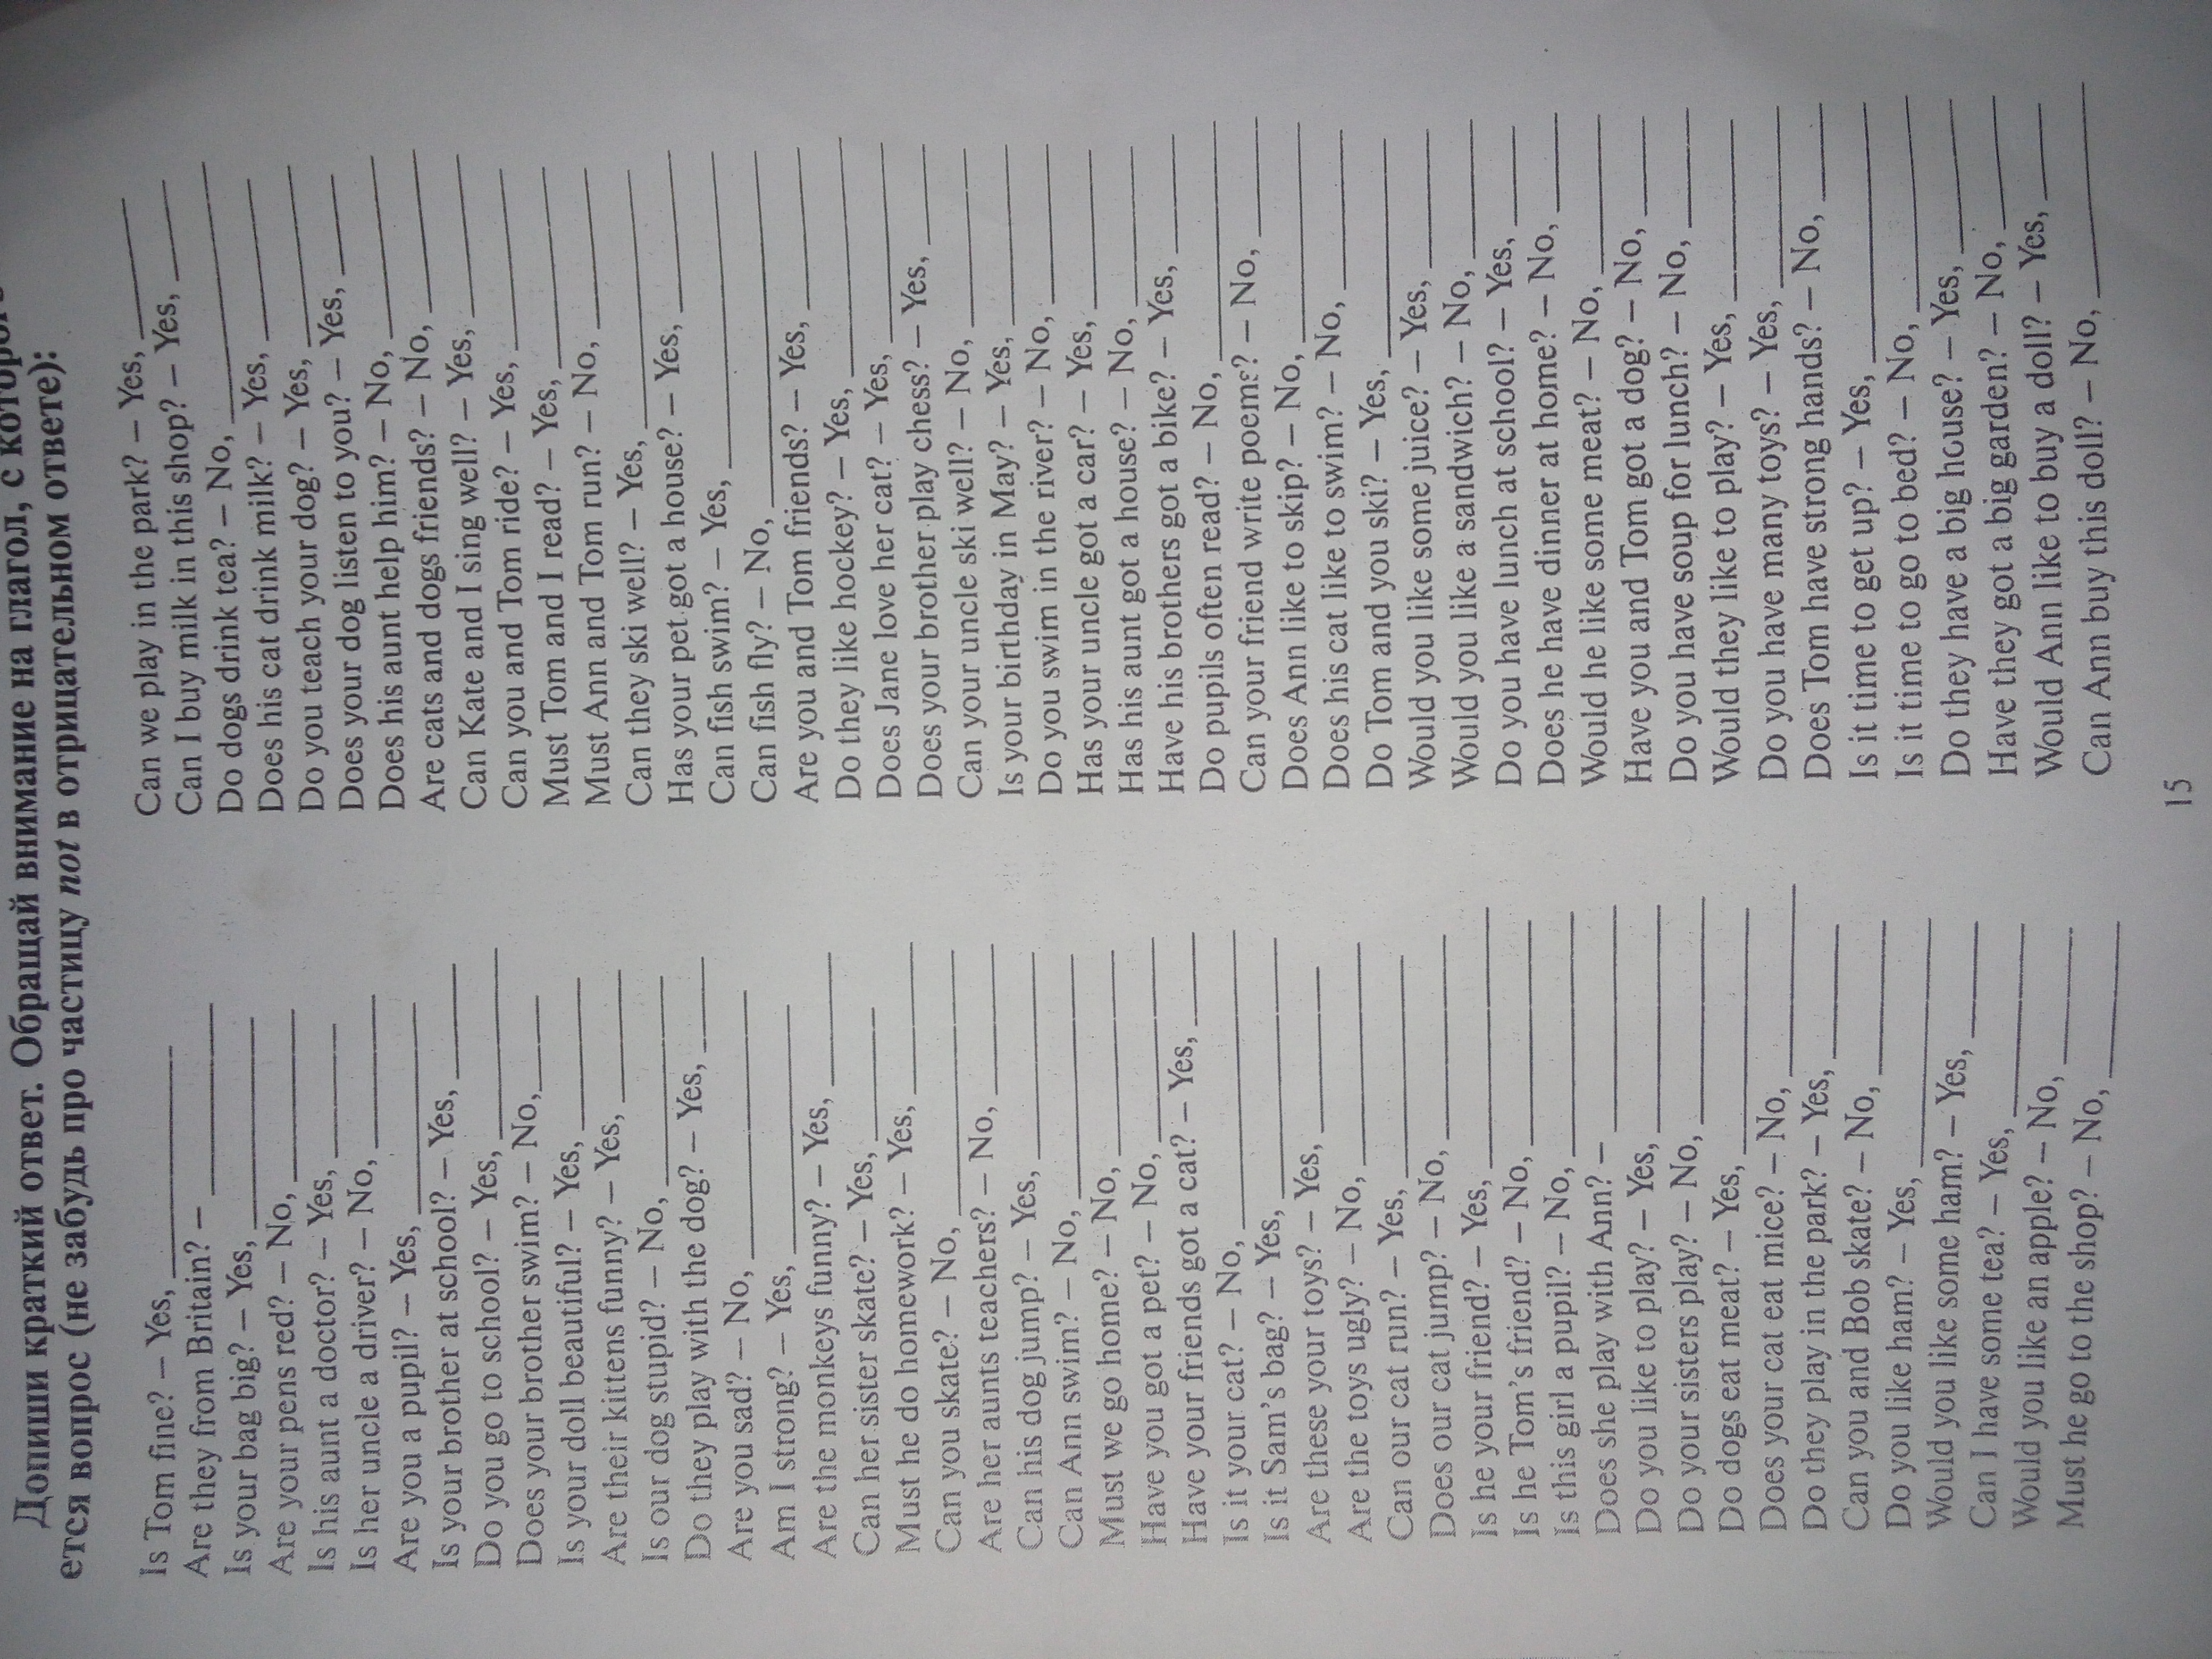 Допиши краткий ответ. Обращай внимание на глагол, с
ется вопрос (не забудь про частицу not в отрицательном ответе):
Is Tom fine? – Yes, ____
Are they from Britain? – ____
Is your bag big? – Yes, ____
Are your pens red? – No, ____
Is his aunt a doctor? – Yes, ____
Is her uncle a driver? – No, ____
Are you a pupil? – Yes, ____
Is your brother at school? – Yes, ____
Do you go to school? – Yes, ____
Does your brother swim? – No, ____
Is your doll beautiful? – Yes, ____
Are their kittens funny? – Yes, ____
Is our dog stupid? – No, ____
Do they play with the dog? – Yes, ____
Are you sad? – No, ____
Am I strong? – Yes, ____
Are the monkeys funny? – Yes, ____
Can her sister skate? – Yes, ____
Must he do homework? – Yes, ____
Can you skate? – No, ____
Are her aunts teachers? – No, ____
Can his dog jump? – Yes, ____
Can Ann swim? – No, ____
Must we go home? – No, ____
Have you got a pet? – No, ____
Have your friends got a cat? – Yes, ____
Is it your cat? – No, ____
Is it Sam's bag? – Yes, ____
Are these your toys? – Yes, ____
Are the toys ugly? – No, ____
Can our cat run? – Yes, ____
Does our cat jump? – No, ____
Is he your friend? – Yes, ____
Is he Tom's friend? – No, ____
Is this girl a pupil? – No, ____
Does she play with Ann? – ____
Do you like to play? – Yes, ____
Do your sisters play? – No, ____
Do dogs eat meat? – Yes, ____
Does your cat eat mice? – No, ____
Do they play in the park? – Yes, ____
Can you and Bob skate? – No, ____
Do you like ham? – Yes, ____
Would you like some ham? – Yes, ____
Can I have some tea? – Yes, ____
Would you like an apple? – No, ____
Must he go to the shop? – No, ____
Can we play in the park? – Yes, ____
Can I buy milk in this shop? – Yes, ____
Do dogs drink tea? – No, ____
Does his cat drink milk? – Yes, ____
Do you teach your dog? – Yes, ____
Does your dog listen to you? – Yes, ____
Does his aunt help him? – No, ____
Are cats and dogs friends? – No, ____
Can Kate and I sing well? – Yes, ____
Can you and Tom ride? – Yes, ____
Must Tom and I read? – Yes, ____
Must Ann and Tom run? – No, ____
Can they ski well? – Yes, ____
Has your pet got a house? – Yes, ____
Can fish swim? – Yes, ____
Can fish fly? – No, ____
Are you and Tom friends? – Yes, ____
Do they like hockey? – Yes, ____
Does Jane love her cat? – Yes, ____
Does your brother play chess? – Yes, ____
Can your uncle ski well? – No, ____
Is your birthday in May? – Yes, ____
Do you swim in the river? – No, ____
Has your uncle got a car? – Yes, ____
Has his aunt got a house? – No, ____
Have his brothers got a bike? – Yes, ____
Do pupils often read? – No, ____
Can your friend write poems? – No, ____
Does Ann like to skip? – No, ____
Does his cat like to swim? – No, ____
Do Tom and you ski? – Yes, ____
Would you like some juice? – Yes, ____
Would you like a sandwich? – No, ____
Do you have lunch at school? – Yes, ____
Does he have dinner at home? – No, ____
Would he like some meat? – No, ____
Have you and Tom got a dog? – No, ____
Do you have soup for lunch? – No, ____
Would they like to play? – Yes, ____
Do you have many toys? – Yes, ____
Does Tom have strong hands? – No, ____
Is it time to get up? – Yes, ____
Is it time to go to bed? – No, ____
Do they have a big house? – Yes, ____
Have they got a big garden? – No, ____
Would Ann like to buy a doll? – Yes, ____
Can Ann buy this doll? – No, ____
15